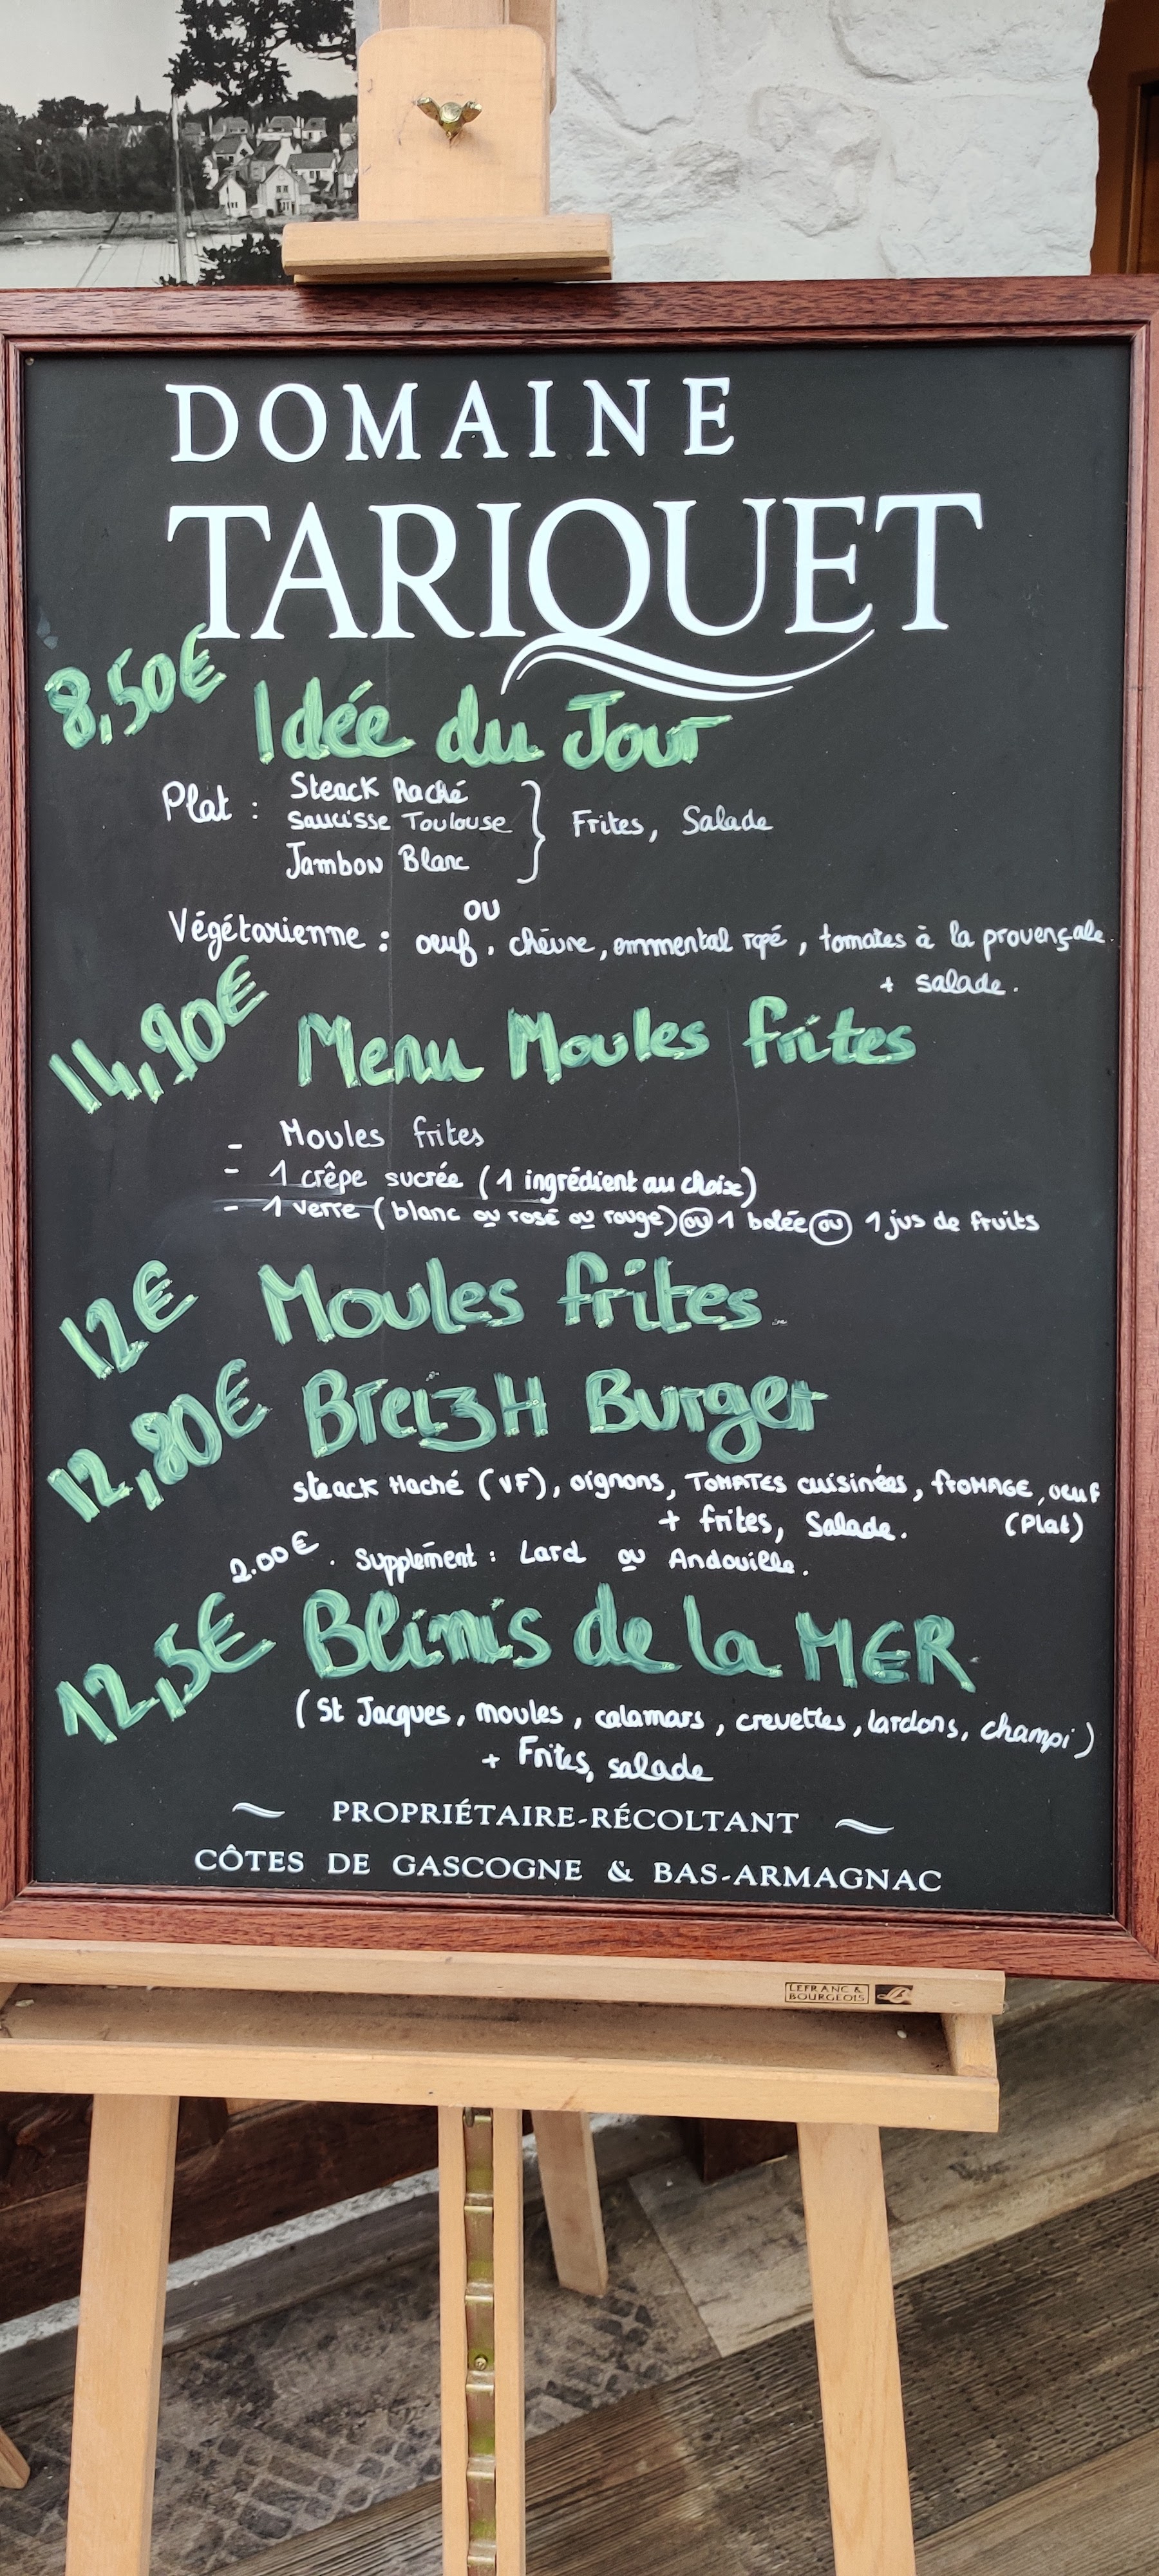 DOMAINE
TARIQUET
8,50€ Idée du Jour
Plat : Steack Haché
Saucisse Toulouse } Frites, Salade
Jambon Blanc
ou
Végétarienne : oeuf, chèvre, emmental rapé, tomates à la provençale
+ salade.
14,90€ Menu Moules frites
- Moules frites
- 1 crêpe sucrée (1 ingrédient au choix)
- 1 verre (blanc ou rosé ou rouge) ou 1 bolée ou 1 jus de fruits
12€ Moules frites
12,80€ BreizH Burger
steack Haché (VF), oignons, TOMATES cuisinées, fROMAGE, oeuf
+ frites, Salade. (Plat)
2.00€ . Supplément : Lard ou Andouille.
12,5€ Blinis de la MER
(St Jacques, moules, calamars, crevettes, lardons, champi)
+ Frites, salade
PROPRIÉTAIRE-RÉCOLTANT
CÔTES DE GASCOGNE & BAS-ARMAGNAC
LEFRANC &
BOURGEOIS